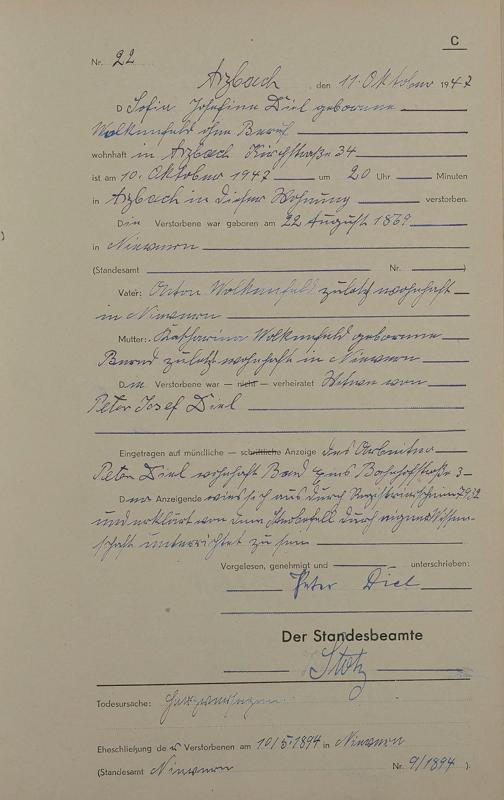 C
Nr. 22
Arzbach, den 11. Oktober 1947
D Sofia Josefine Diel geborene
Wolkenfeld ohne Beruf
wohnhaft in Arzbach Kirchstraße 34
ist am 10. Oktober 1947 um 20 Uhr Minuten
in Arzbach in dieser Wohnung verstorben.
Die Verstorbene war geboren am 22 August 1869
in Nievern
(Standesamt Nr. )
Vater: Anton Wolkenfeld zuletzt wohnhaft
in Nievern
Mutter: Katharina Wolkenfeld geborene
zuletzt wohnhaft in Nievern
Die Verstorbene war — nicht — verheiratet Witwe von
Peter Josef Diel
Eingetragen auf mündliche — schriftliche Anzeige des Arbeiters
Peter Diel wohnhaft Bad Ems Bahnhofstraße 3
Der Anzeigende wies sich aus durch
und erklärt von dem Sterbefall durch eigene Wissen-
schaft unterrichtet zu sein
Vorgelesen, genehmigt und unterschrieben:
Peter Diel
Der Standesbeamte
Stotz
Todesursache: Herzversagen
Eheschließung der Verstorbenen am 10/5.1894 in Nievern
(Standesamt Nievern Nr. 9/1894 ).